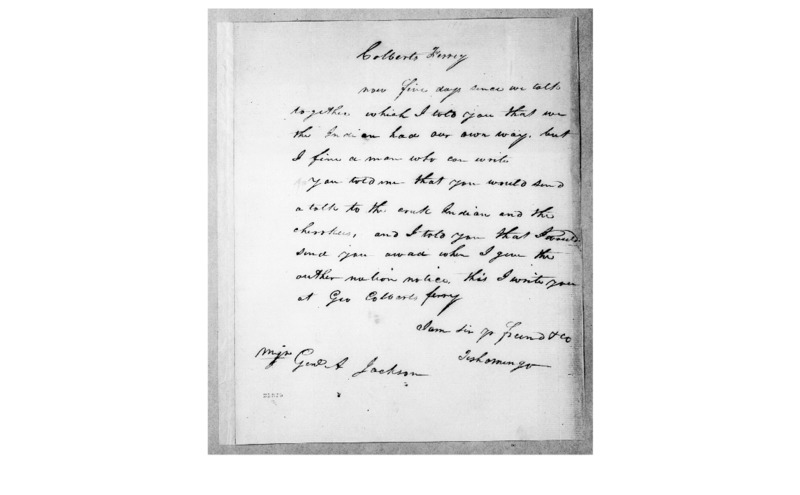 Colberts Ferry
now five days since we talk
together which I told you that we
the Indian had our own way. but
I fine a man who can write
you told me that you would send
a talk to the creek Indian and the
cherokees, and I told you that I would
send you awad when I give the
outher nation notice. this I write you
at Geo Colberts ferry
I am sir yr friend & Co
Teshomingo
Mjr Genl A Jackson